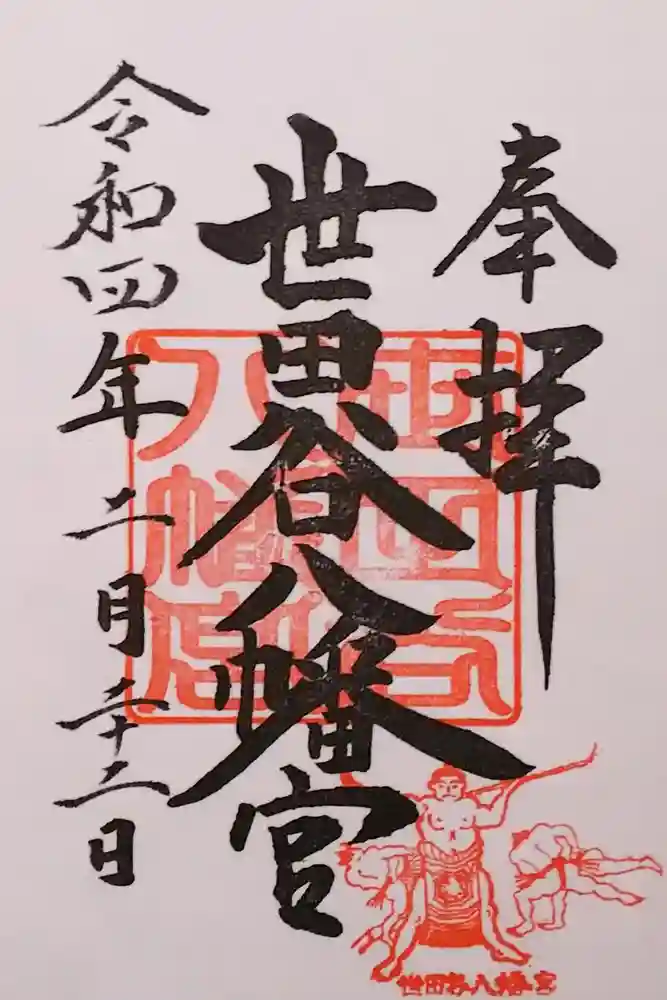 奉拝
世田谷八幡宮
令和四年二月二十二日
世田谷八幡宮
世田谷八幡宮